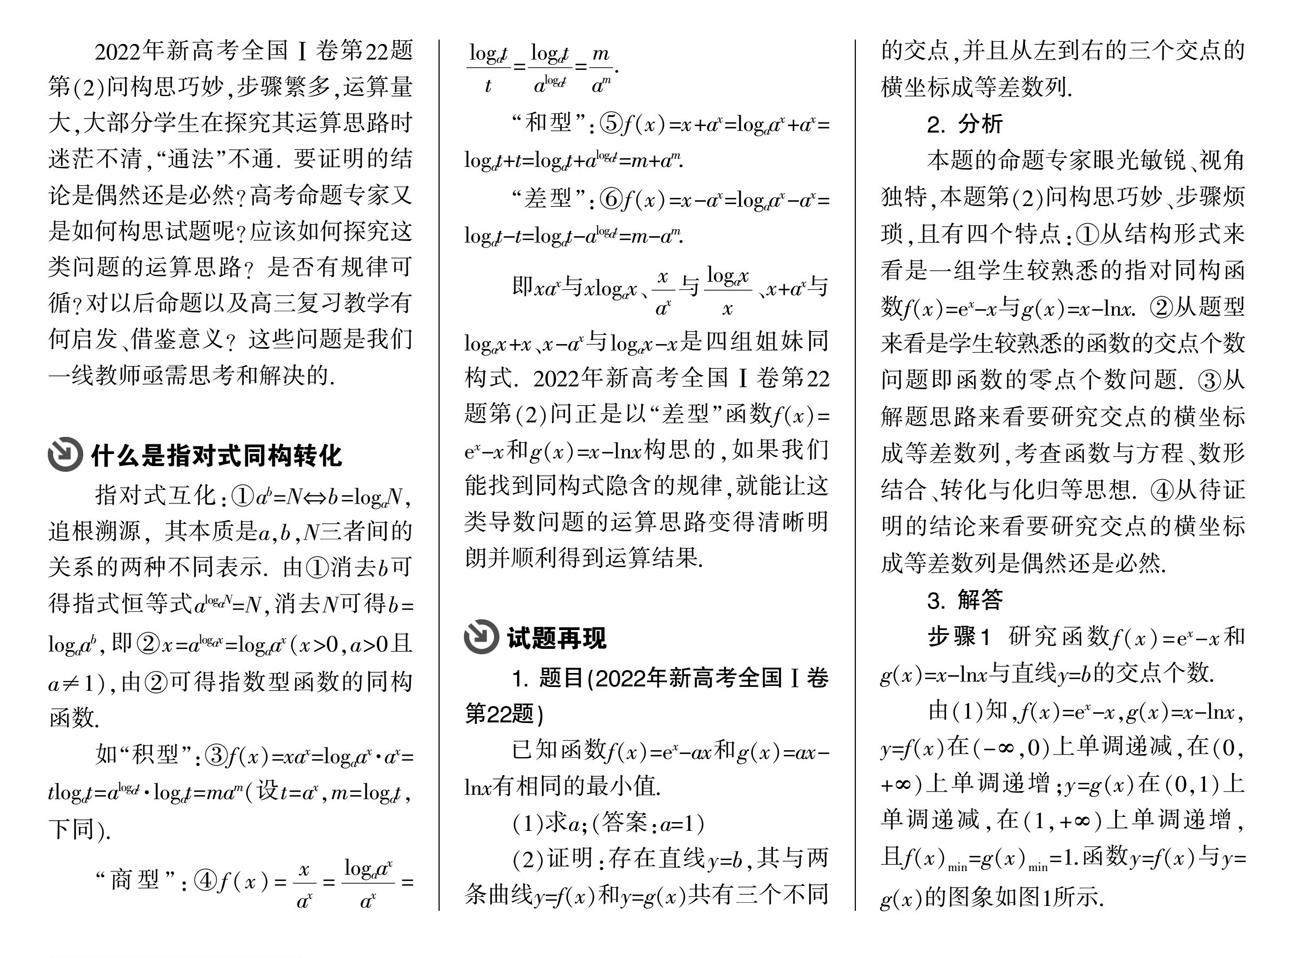 2022年新高考全国Ⅰ卷第22题
第(2)问构思巧妙,步骤繁多,运算量
大,大部分学生在探究其运算思路时
迷茫不清,“通法”不通. 要证明的结
论是偶然还是必然?高考命题专家又
是如何构思试题呢?应该如何探究这
类问题的运算思路? 是否有规律可
循?对以后命题以及高三复习教学有
何启发、借鉴意义? 这些问题是我们
一线教师亟需思考和解决的.
什么是指对式同构转化
指对式互化:①a^b=N⇔b=log_aN,
追根溯源, 其本质是a,b,N三者间的
关系的两种不同表示. 由①消去b可
得指式恒等式a^{log_aN}=N,消去N可得b=
log_aa^b,即②x=a^{log_ax}=log_aa^x(x>0,a>0且
a≠1),由②可得指数型函数的同构
函数.
如“积型”:③f(x)=xa^x=log_aa^x·a^x=
tlog_at=a^{log_at}·log_at=ma^m(设t=a^x,m=log_at,
下同).
“商型”:④f(x)=x/a^x=log_aa^x/a^x=
log_at/t=log_at/a^{log_at}=m/a^m.
“和型”:⑤f(x)=x+a^x=log_aa^x+a^x=
log_at+t=log_at+a^{log_at}=m+a^m.
“差型”:⑥f(x)=x-a^x=log_aa^x-a^x=
log_at-t=log_at-a^{log_at}=m-a^m.
即xa^x与xlog_ax、x/a^x与log_ax/x、x+a^x与
log_ax+x、x-a^x与log_ax-x是四组姐妹同
构式. 2022年新高考全国Ⅰ卷第22
题第(2)问正是以“差型”函数f(x)=
e^x-x和g(x)=x-lnx构思的,如果我们
能找到同构式隐含的规律,就能让这
类导数问题的运算思路变得清晰明
朗并顺利得到运算结果.
试题再现
1. 题目(2022年新高考全国Ⅰ卷
第22题)
已知函数f(x)=e^x-ax和g(x)=ax-
lnx有相同的最小值.
(1)求a;(答案:a=1)
(2)证明:存在直线y=b,其与两
条曲线y=f(x)和y=g(x)共有三个不同
的交点,并且从左到右的三个交点的
横坐标成等差数列.
2. 分析
本题的命题专家眼光敏锐、视角
独特,本题第(2)问构思巧妙、步骤烦
琐,且有四个特点:①从结构形式来
看是一组学生较熟悉的指对同构函
数f(x)=e^x-x与g(x)=x-lnx. ②从题型
来看是学生较熟悉的函数的交点个数
问题即函数的零点个数问题. ③从
解题思路来看要研究交点的横坐标
成等差数列,考查函数与方程、数形
结合、转化与化归等思想. ④从待证
明的结论来看要研究交点的横坐标
成等差数列是偶然还是必然.
3. 解答
步骤1 研究函数f(x)=e^x-x和
g(x)=x-lnx与直线y=b的交点个数.
由(1)知,f(x)=e^x-x,g(x)=x-lnx,
y=f(x)在(-∞,0)上单调递减,在(0,
+∞)上单调递增;y=g(x)在(0,1)上
单调递减,在(1,+∞)上单调递增,
且f(x)_{min}=g(x)_{min}=1.函数y=f(x)与y=
g(x)的图象如图1所示.